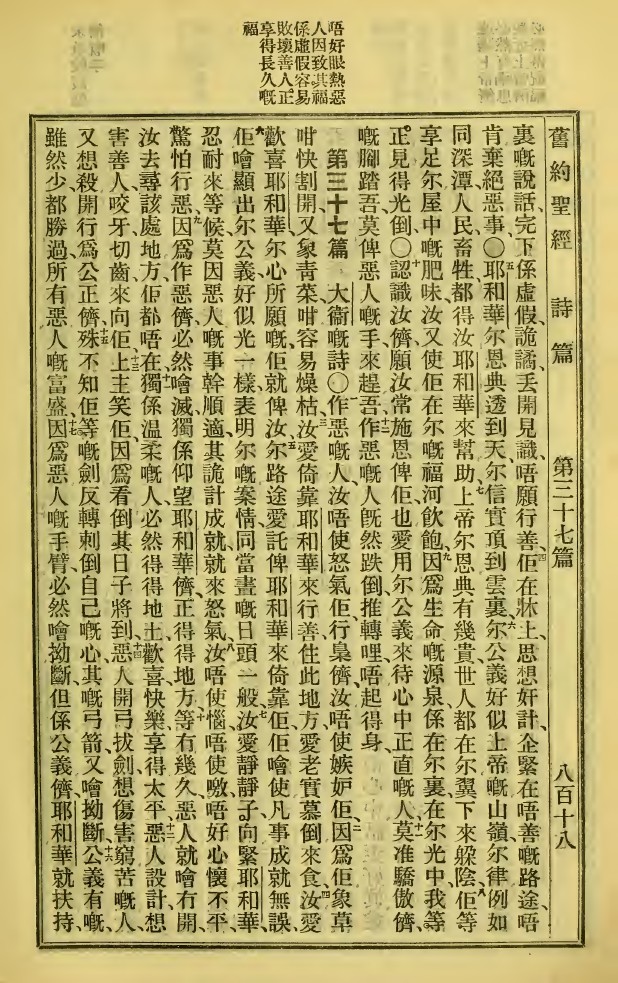 唔好眼熱惡
人因致其福
係虛假容易
敗壞善人正
享得長久嘅
福
舊約聖經 詩篇 第三十七篇 八百十八
裏嘅說話、完下係虛假、詭譎、丟開見識、唔願行善、四佢在牀上、思想奸計、企緊在唔善嘅路途、唔
肯棄絕惡事○五耶和華尔恩典透到天、尔信實頂到雲裏、六尔公義好似上帝嘅山嶺、尔律例如
同深潭、人民畜牲、都得汝耶和華來幫助、七上帝尔恩典有幾貴、世人都在尔翼下來躲陰、八佢等
享足尔屋中嘅肥味、汝又使佢在尔嘅福河飲飽、九因爲生命嘅源泉係在尔裏、在尔光中、我等
正見得光倒○十認識汝儕、願汝常施恩俾佢、也愛用尔公義來待心中正直嘅人、十一莫准驕傲儕、
嘅腳踏吾、莫俾惡人嘅手來趕吾、十二作惡嘅人旣然跌倒、推轉哩唔起得身、
第三十七篇 大衞嘅詩○一作惡嘅人、汝唔使怒氣佢、行梟儕、汝唔使嫉妒佢、二因爲佢象草
咁快割開、又象靑菜咁容易燥枯、三汝愛倚靠耶和華來行善、住此地方、愛老實慕倒來食、四汝愛
歡喜耶和華、尔心所願嘅、佢就俾汝、五尔路途愛託俾耶和華、來倚靠佢、佢噲使凡事成就無誤、
六佢噲顯出尔公義好似光一樣、表明尔嘅案情、同當晝嘅日頭一般、七汝愛靜靜子向緊耶和華、
忍耐來等候、莫因惡人嘅事幹順適、其詭計成就、就來怒氣、八汝唔使惱、唔使噭、唔好心懷不平、
驚怕行惡、九因爲作惡儕必然噲滅、獨係仰望耶和華儕、正得得地方、十等有幾久、惡人就噲冇開、
汝去尋該處地方、佢都唔在、十一獨係温柔嘅人、必然得得地土、歡喜快樂、享得太平、十二惡人設計、想
害善人、咬牙切齒來向佢、十三上主笑佢、因爲看倒其日子將到、十四惡人開弓拔劍、想傷害窮苦嘅人、
又想殺開行爲公正儕、十五殊不知佢等嘅劍、反轉刺倒自己嘅心、其嘅弓箭、又噲拗斷、十六公義有嘅、
雖然少、都勝過所有惡人嘅富盛、十七因爲惡人嘅手臂、必然噲拗斷、但係公義儕、耶和華就扶持、